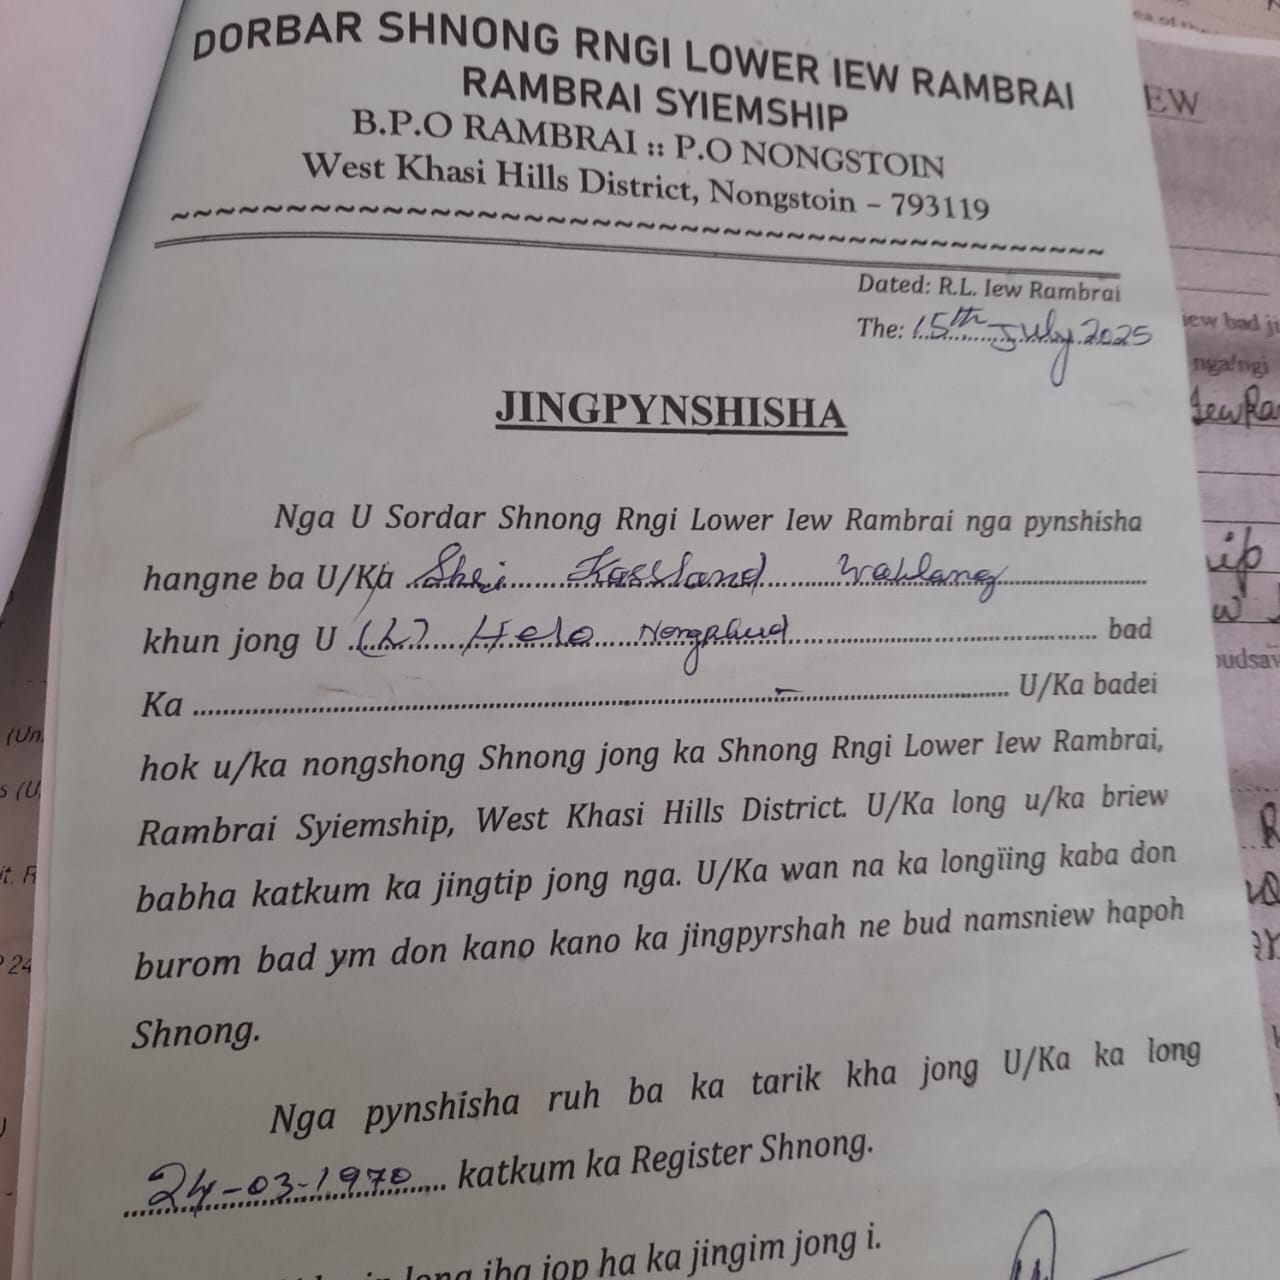 DORBAR SHNONG RNGI LOWER IEW RAMBRAI
RAMBRAI SYIEMSHIP
B.P.O RAMBRAI :: P.O NONGSTOIN
West Khasi Hills District, Nongstoin – 793119
Dated: R.L. Iew Rambrai
The: 15th July 2025
JINGPYNSHISHA
Nga U Sordar Shnong Rngi Lower Iew Rambrai nga pynshisha
hangne ba U/Ka Shri Kassland Wahlang
khun jong U (L) Helo Nongphud bad
Ka – U/Ka badei
hok u/ka nongshong Shnong jong ka Shnong Rngi Lower Iew Rambrai,
Rambrai Syiemship, West Khasi Hills District. U/Ka long u/ka briew
babha katkum ka jingtip jong nga. U/Ka wan na ka longïing kaba don
burom bad ym don kano kano ka jingpyrshah ne bud namsniew hapoh
Shnong.
Nga pynshisha ruh ba ka tarik kha jong U/Ka ka long
24-03-1970 katkum ka Register Shnong.
long jha jop ha ka jingim jong i.
EW
iew bad
nga/ngi
(Un.
24